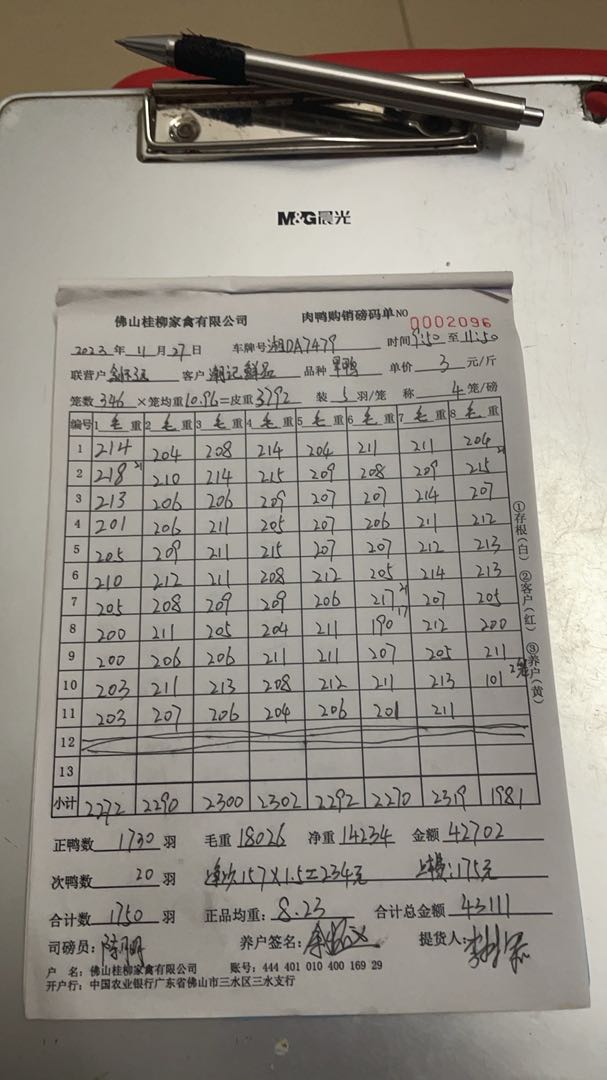 M&G晨光
佛山桂柳家禽有限公司 肉鸭购销磅码单 NO 0002096
2023年11月27日 车牌号湘DA7479 时间9:50至11:50
联营户 客户 潮记鲜品 品种 旱鸭 单价 3 元/斤
笼数 346 ×笼均重10.96=皮重3792 装 5 羽/笼 称 4 笼/磅
编号 1 毛 重 2 毛 重 3 毛 重 4 毛 重 5 毛 重 6 毛 重 7 毛 重 8 毛 重
1 214 204 208 214 204 211 211 204
2 218 21 210 214 215 209 208 209 215 21
3 213 206 206 209 207 207 214 207
4 201 206 211 205 207 206 211 212
5 205 209 211 215 207 207 212 213
6 210 212 211 208 212 205 214 213
7 205 208 209 209 206 217 21 207 205
8 200 211 205 204 211 190 17 212 200
9 200 206 206 211 211 207 205 211
10 203 211 213 208 212 211 213 101 2笼
11 203 207 206 204 206 201 211
12
13
小计 2272 2290 2300 2302 2292 2270 2319 1981
①存根(白) ②客户(红) ③养户(黄)
正鸭数 1730 羽 毛重 18026 净重 14234 金额 42702
次鸭数 20 羽 157×1.5=234元 175元
合计数 1750 羽 正品均重: 8.23 合计总金额 43111
司磅员: 养户签名: 提货人:
户 名: 佛山桂柳家禽有限公司 账号: 444 401 010 400 169 29
开户行: 中国农业银行广东省佛山市三水区三水支行